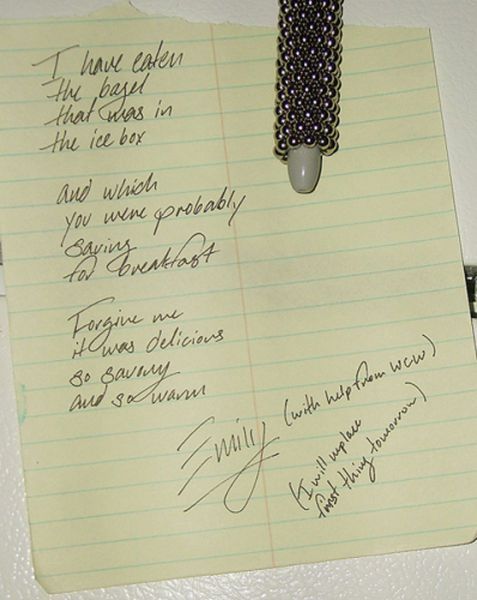 I have eaten
the bagel
that was in
the ice box
and which
you were probably
saving
for breakfast
Forgive me
it was delicious
so savory
and so warm
Emily (with help from WCW)
(I will replace
first thing tomorrow)